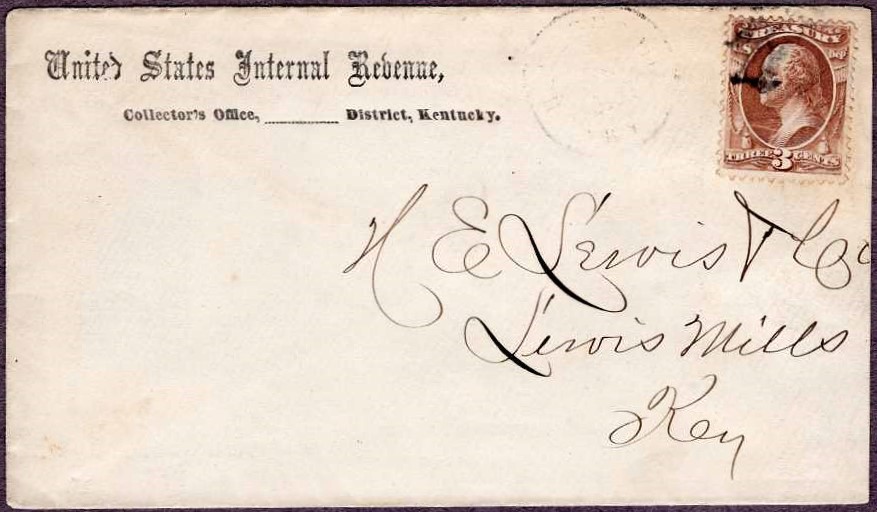 United States Internal Revenue,
Collector's Office, ________ District, Kentucky.
TREASURY
U.S. DEP.
THREE 3 CENTS
H E Lewis & Co
Lewis Mills
Key